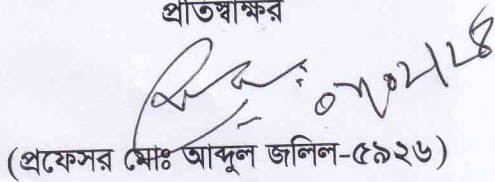 প্রতিস্বাক্ষর
(প্রফেসর মোঃ আব্দুল জলিল-৫৯২৬)